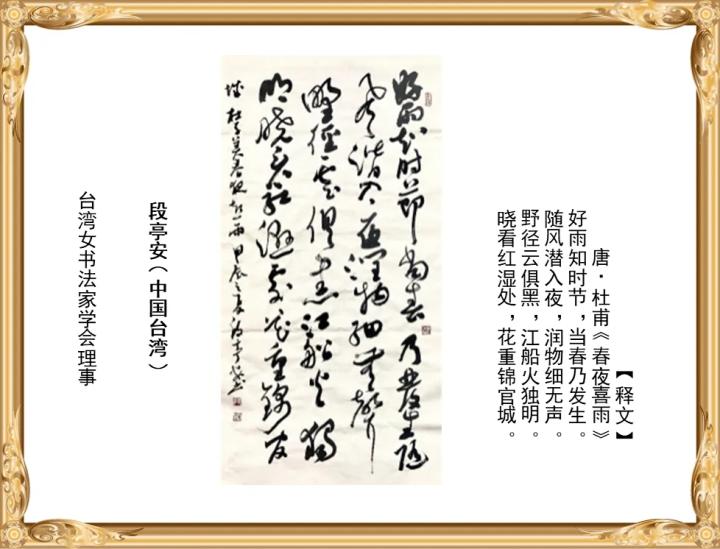 【释文】
唐·杜甫《春夜喜雨》
好雨知时节，当春乃发生。
随风潜入夜，润物细无声。
野径云俱黑，江船火独明。
晓看红湿处，花重锦官城。
好雨知时節當春乃發生隨
風潛入夜潤物細無聲
野徑雲俱黑江船火獨
明曉看紅濕處花重錦官
城 杜子美春夜喜雨 甲辰之夏
段亭安（中国台湾）
台湾女书法家学会理事